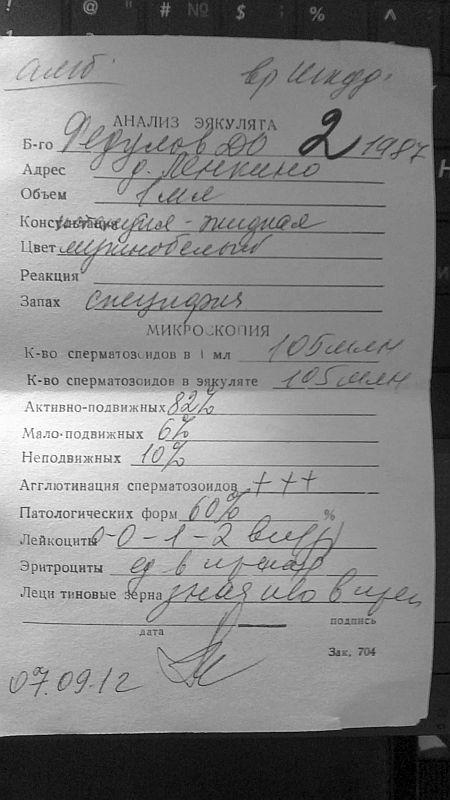 амб.
вр
АНАЛИЗ ЭЯКУЛЯТА
Б-го Федулов ДО 2 1987
Адрес д. Ленкино
Объем 1 мл
Консистенция - жидкая
Цвет
Реакция
Запах специфич
МИКРОСКОПИЯ
К-во сперматозоидов в 1 мл 105 млн
К-во сперматозоидов в эякуляте 105 млн
Активно-подвижных 82%
Мало-подвижных 6%
Неподвижных 10%
Агглютинация сперматозоидов +++
Патологических форм 60% %
Лейкоциты 0-0-1-2 в п/зр
Эритроциты ед в
Леци тиновые зерна
дата подпись
Зак. 704
07.09.12